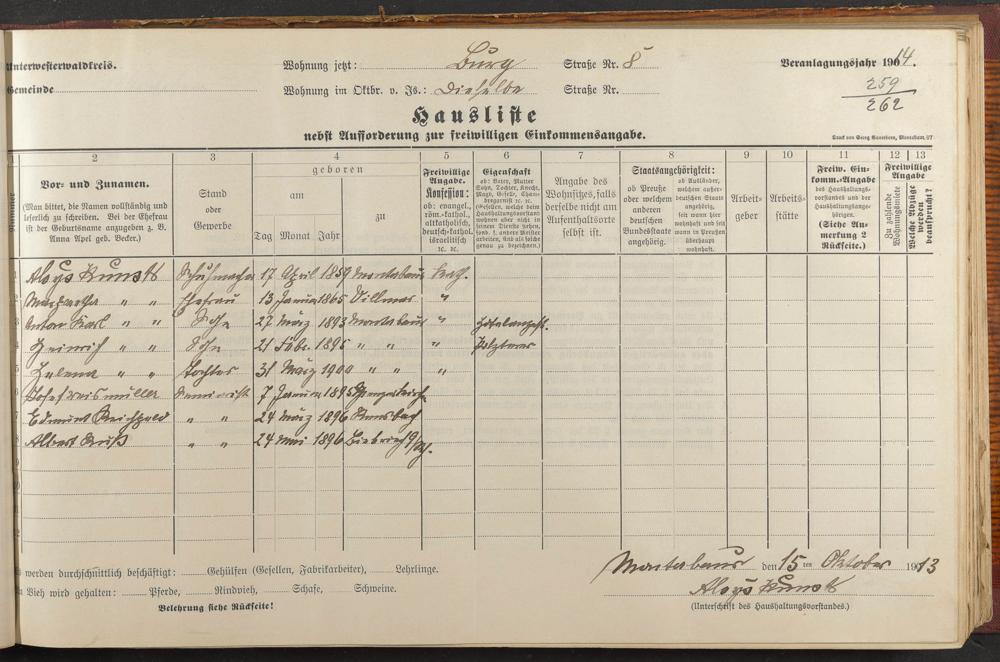 Unterwesterwaldkreis.
Wohnung jetzt: Burg Straße Nr. 8
Veranlagungsjahr 1914.
Gemeinde
Wohnung im Oktbr. v. Js.: Dieselbe Straße Nr.
259
262
Hausliste
nebst Aufforderung zur freiwilligen Einkommensangabe.
Druck von Georg Sauerborn, Montabaur.
1 2 3 4 5 6 7 8 9 10 11 12 13
Nummer
Vor- und Zunamen.
(Man bittet, die Namen vollständig und
leserlich zu schreiben. Bei der Ehefrau
ist der Geburtsname anzugeben z. B.
Anna Apel geb. Becker.)
Stand
oder
Gewerbe
geboren
am
zu
Tag Monat Jahr
Freiwillige
Angabe.
Konfession:
ob: evangel.,
röm.-kathol.,
altkatholisch,
deutsch-kathol.
israelitisch
ec. ec.
Eigenschaft
ob: Vater, Mutter
Sohn, Tochter, Knecht,
Magd, Geselle, Cham-
bregarnist ec. ec.
(Gesellen, welche beim
Haushaltungsvorstand
wohnen aber nicht in
seinem Dienste stehen,
sond. f. andere Meister
arbeiten, sind als solche
genau zu bezeichnen).
Angabe des
Wohnsitzes, falls
derselbe nicht am
Aufenthaltsorte
selbst ist.
Staatsangehörigkeit:
ob Preuße
oder welchem
anderen
deutschen
Bundesstaate
angehörig.
ob Ausländer,
welchem außer-
deutschen Staate
angehörig,
seit wann hier
wohnhaft und seit
wann in Preußen
überhaupt
wohnhaft.
Arbeit-
geber
Arbeits-
stätte
Freiw. Ein-
komm.-Angabe
des Haushaltungs-
vorstandes und der
Haushaltungsange-
hörigen.
(Siehe An-
merkung 2
Rückseite.)
Freiwillige
Angabe
Zu zahlende
Wohnungsmiete
Welche Abzüge
werden
beansprucht?
Aloys Kunst Schuhmacher 17 April 1859 Montabaur kath.
Margaretha " " Ehefrau 13 Januar 1865 Villmar "
Anton Karl " " Sohn 27 März 1893 Montabaur " Hotelangest.
Heinrich " " Sohn 21 Febr. 1895 " " "
Helena " " Tochter 31 März 1900 " " "
7 Januar 1895
Edmund " " 24 März 1896 Ransbach
Albert " " 24 Mai 1896 Biebrich a/Rh.
Es werden durchschnittlich beschäftigt: Gehülfen (Gesellen, Fabrikarbeiter), Lehrlinge.
An Vieh wird gehalten: Pferde, Rindvieh, Schafe, Schweine.
Belehrung siehe Rückseite!
Montabaur den 15ten Oktober 1913
Aloys Kunst
(Unterschrift des Haushaltungsvorstandes.)